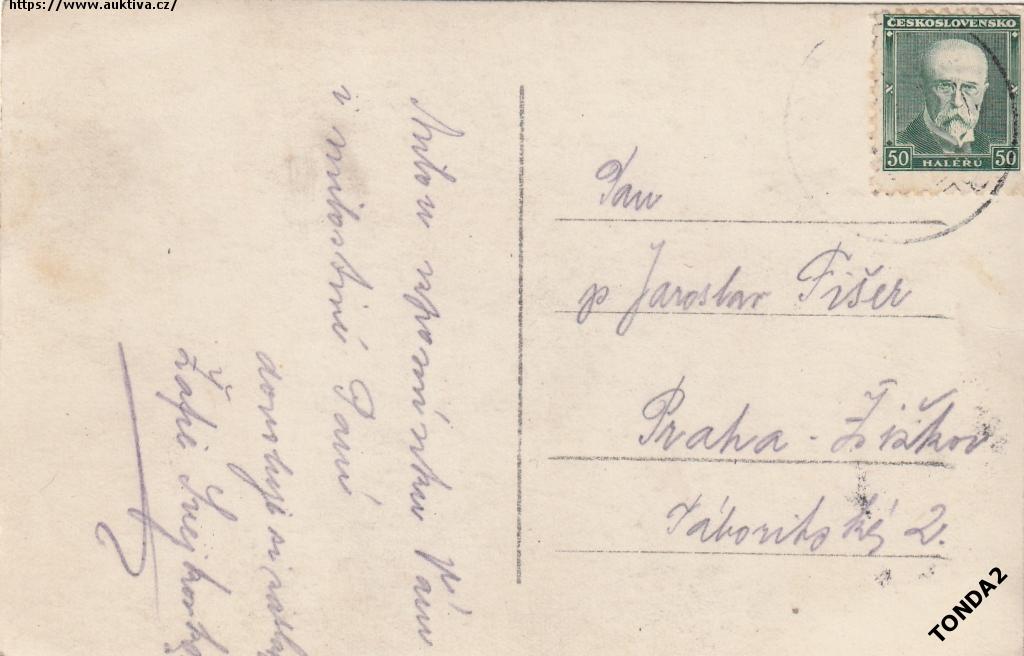 https://www.auktiva.cz/
ČESKOSLOVENSKO
50 HALÉŘŮ 50
Pan
p Jaroslav Fišer
Praha - Žižkov
Táboritská 2.
Vám
i milostivé Paní
dovoluji si zaslat
TONDA2